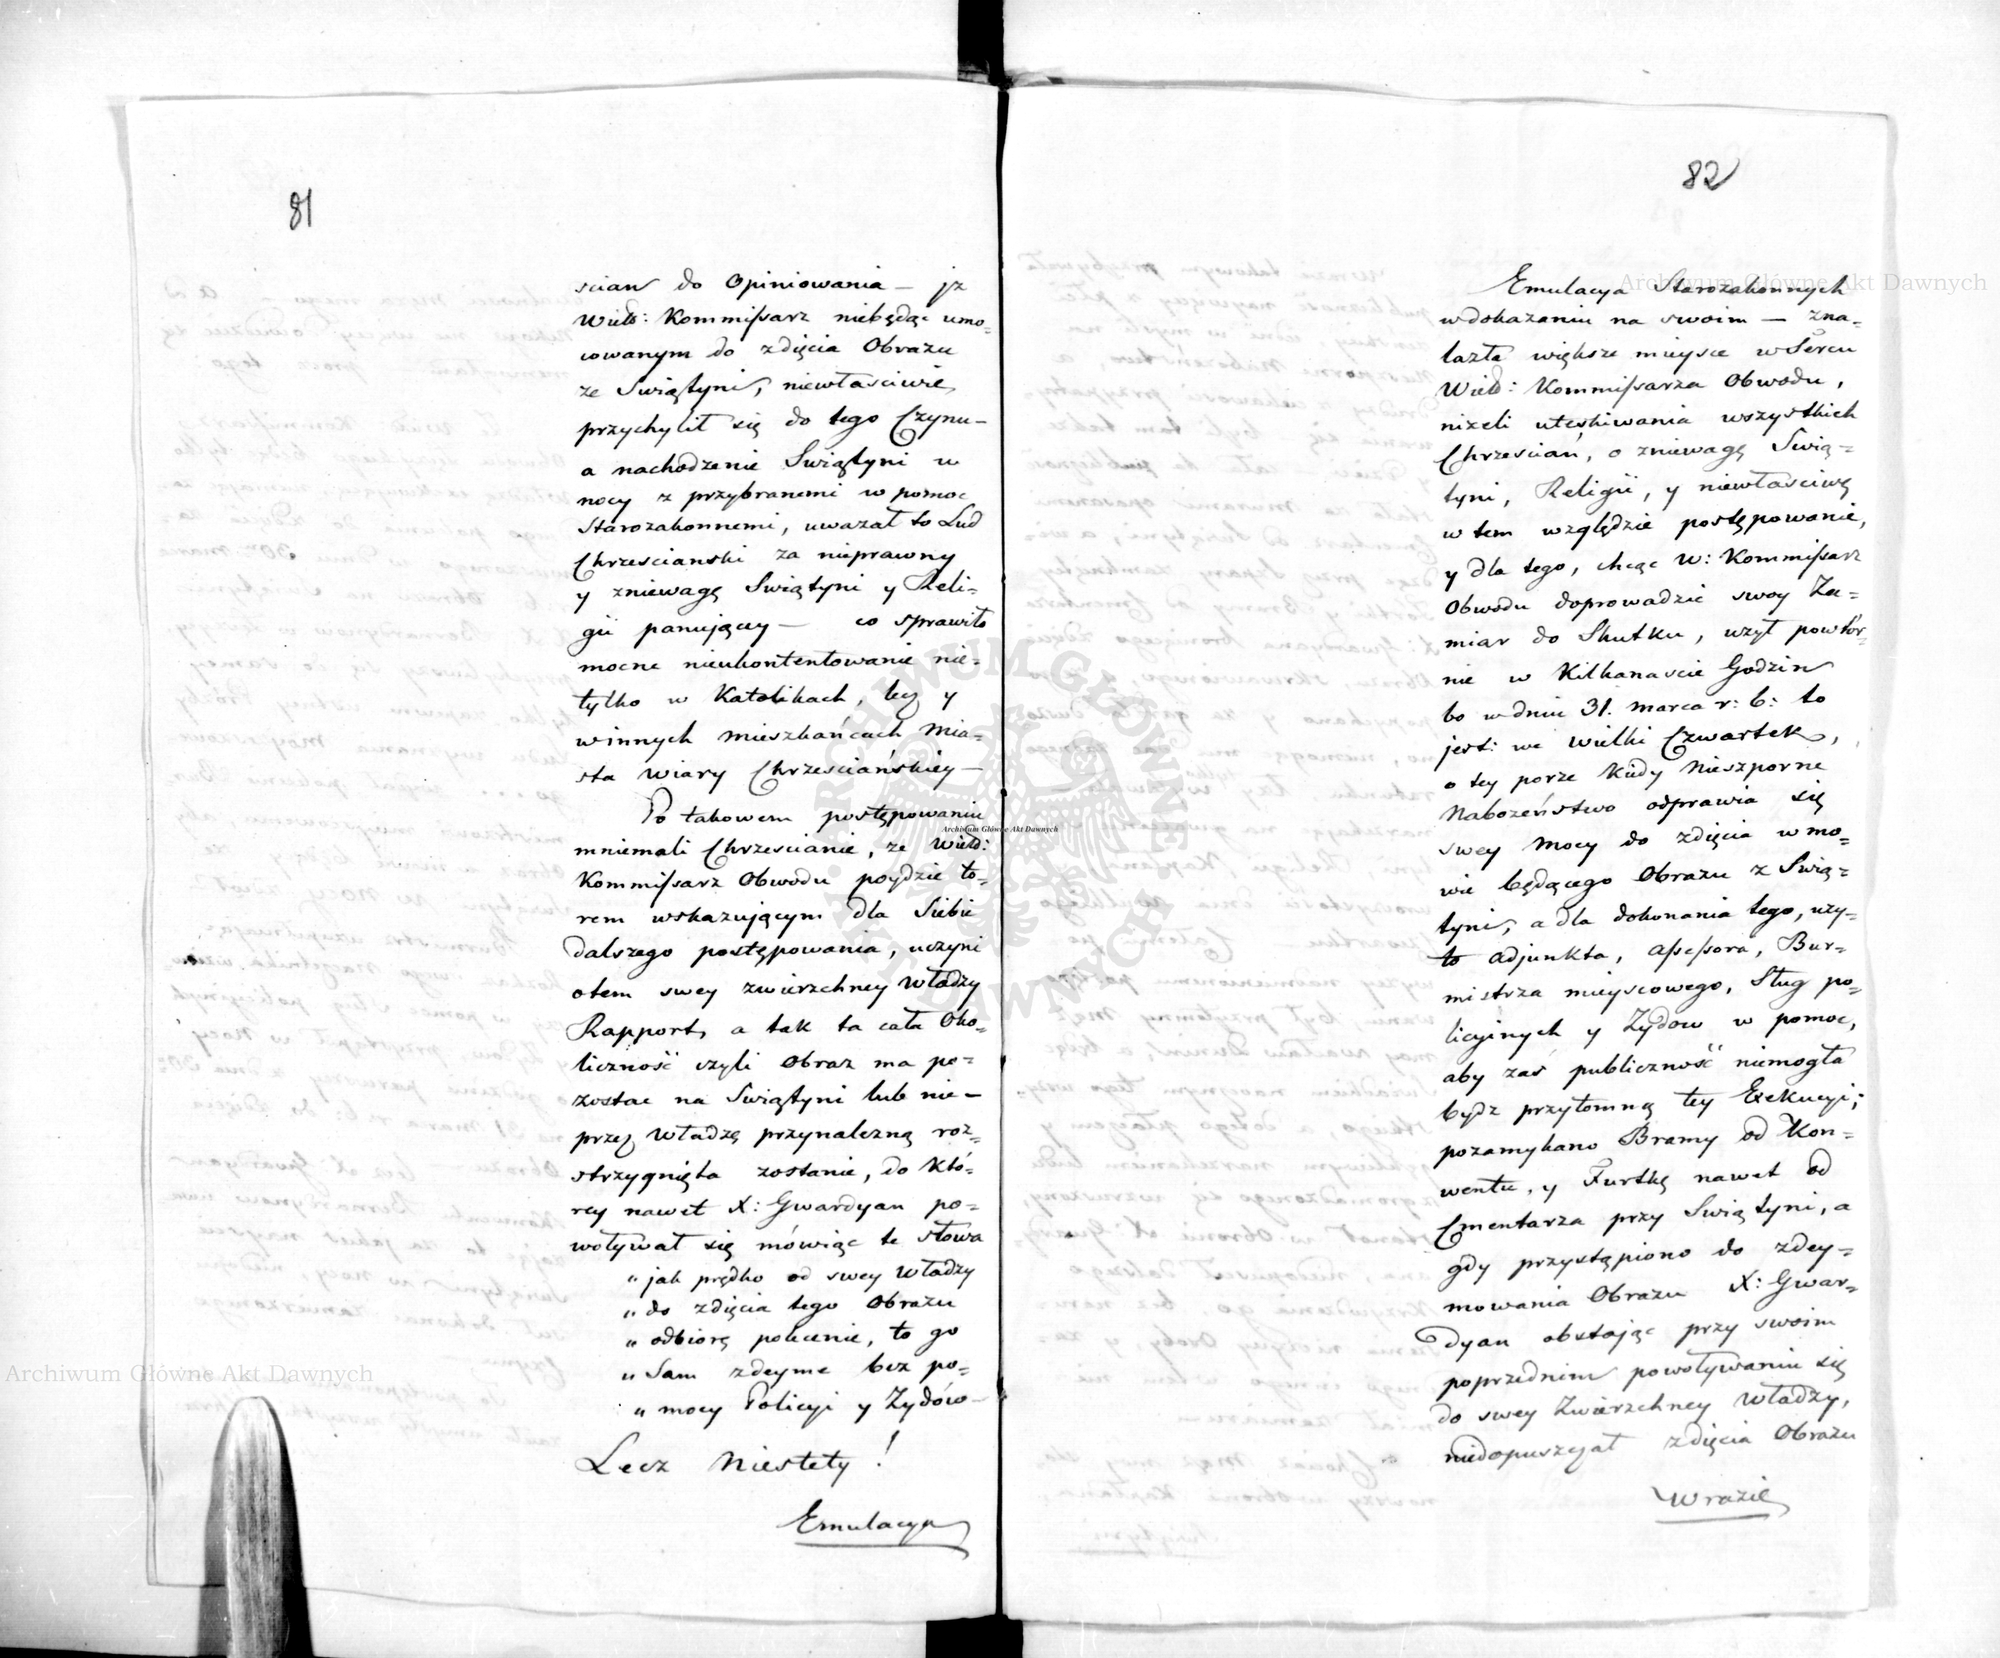 81
scian do Opiniowania — jż
Wielb: Kommissarz niebędąc umo-
cowanym do zdięcia Obrazu
ze Swiątyni, niewłasciwie
przychylił się do tego Czynu —
a nachodzenie Swiątyni w
nocy z przybranemi w pomoc
Starozakonnemi, uwazał to Lud
Chrzescianski za nieprawny
y zniewagę Swiątyni y Reli-
gii panuiącey — co sprawiło
mocne nieukontentowanie nie-
tylko w Katolikach, lecz y
winnych mieszkańcach Mia-
sta Wiary Chrzesciańskiey —
Po takowem postępowaniu
mniemali Chrzescianie, ze Wielb:
Kommissarz Obwodu poydzie to-
rem wskazuiącym dla Siebie
dalszego postępowania, uczyni
otem swey zwierzchney Władzy
Rapport, a tak ta cała Oko-
liczność czyli Obraz ma po-
zostac na Swiątyni lub nie —
przez Władzę przynalezną roz-
strzygnięta zostanie, do Któ-
rey nawet X: Gwardyan po-
wotywał się mówiąc te słowa
" jak prędko od swey Władzy
" do zdięcia tego Obrazu
" odbiorę polecenie, to go
" Sam zdeyme bez po-
" mocy Policyi y Zydów —
Lecz Niestety !
Emulacya
82
Emulacya Starozakonnych
wdokazaniu na swoim — zna-
lazła większe mieysce w Sercu
Wielb: Kommissarza Obwodu,
nizeli utęskiwania wszystkich
Chrzescian, o zniewagę Swią-
tyni, Religii, y niewłasciwę
w tem względzie postępowanie,
y dla tego, chcąc W: Kommissarz
Obwodu doprowadzić swoy Za-
miar do Skutku, uzył powtór-
nie w Kilkanascie Godzin
bo w dniu 31. Marca r: b: to
jest: we Wielki Czwartek,
o tey porze Kiedy Nieszporne
Nabozeństwo odprawia się
swey Mocy do zdięcia w mo-
wie będącego Obrazu z Swią-
tyni, a dla dokonania tego, uzy-
to Adjunkta, Assessora, Bur-
mistrza mieyscowego, Sług po-
licyinych y Zydow w pomoc,
aby zaś publiczność niemogła
bydz przytomną tey Exekucyi;
pozamykano Bramy od Kon-
wentu, y Furtkę nawet od
Cmentarza przy Swiątyni, a
gdy przystąpiono do zdey-
mowania Obrazu X: Gwar-
dyan obstaiąc przy swoim
poprzednim powoływaniu się
do swey Zwierzchney Władzy,
niedopuszczał zdięcia Obrazu
Wrazie
Archiwum Główne Akt Dawnych
Archiwum Główne Akt Dawnych
Archiwum Główne Akt Dawnych
ARCHIWUM GŁÓWNE AKT DAWNYCH